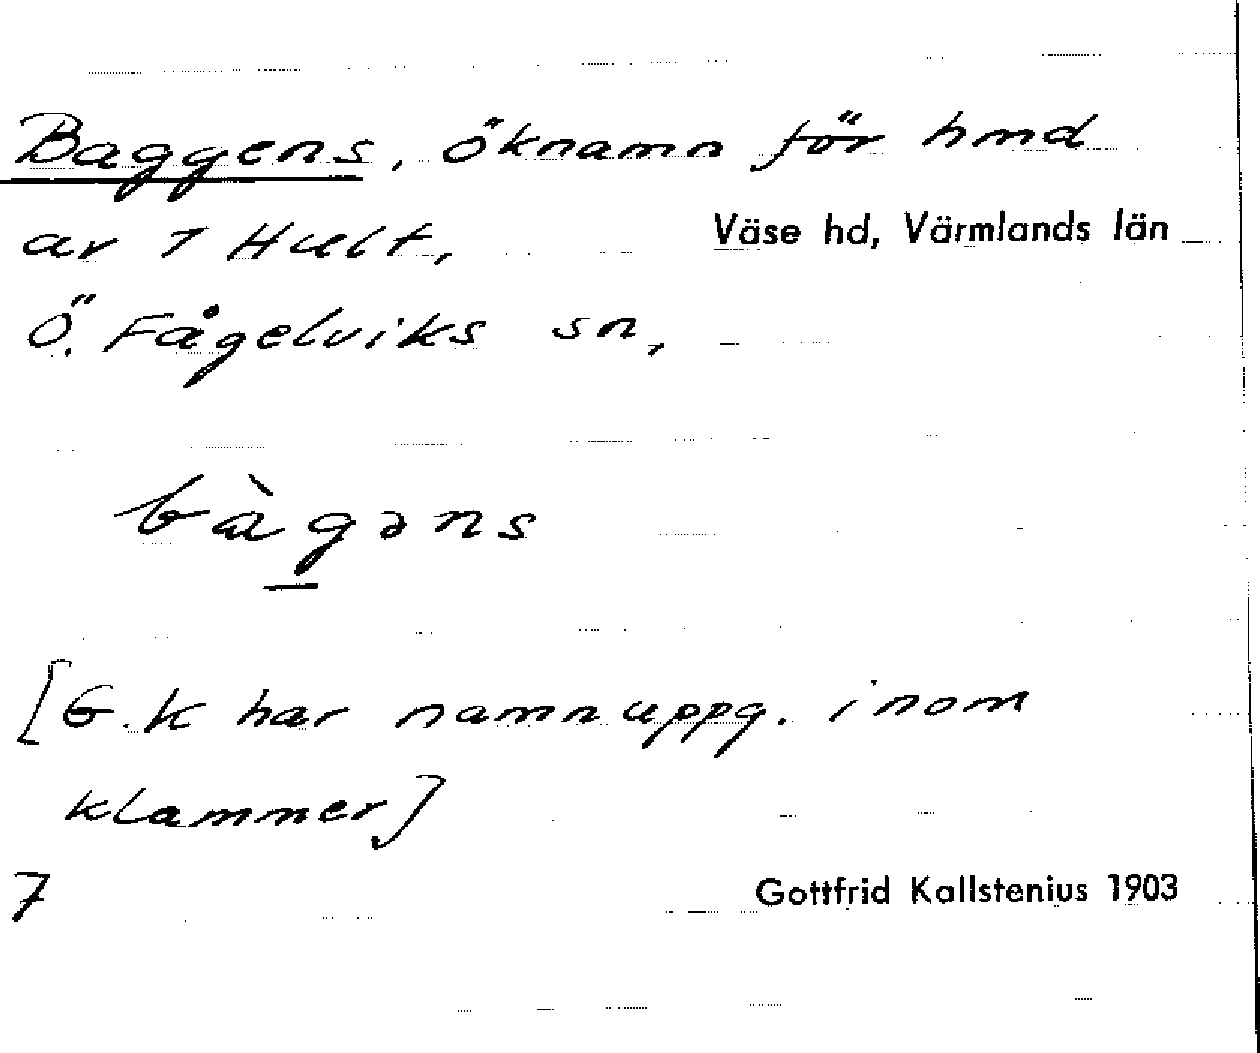 Baggens, öknamn för hmd
av 1 Hult, Väse hd, Värmlands län
Ö. Fågelviks sn,
bàgəns
[G.K har namnuppg. inom
klammer]
7 Gottfrid Kallstenius 1903